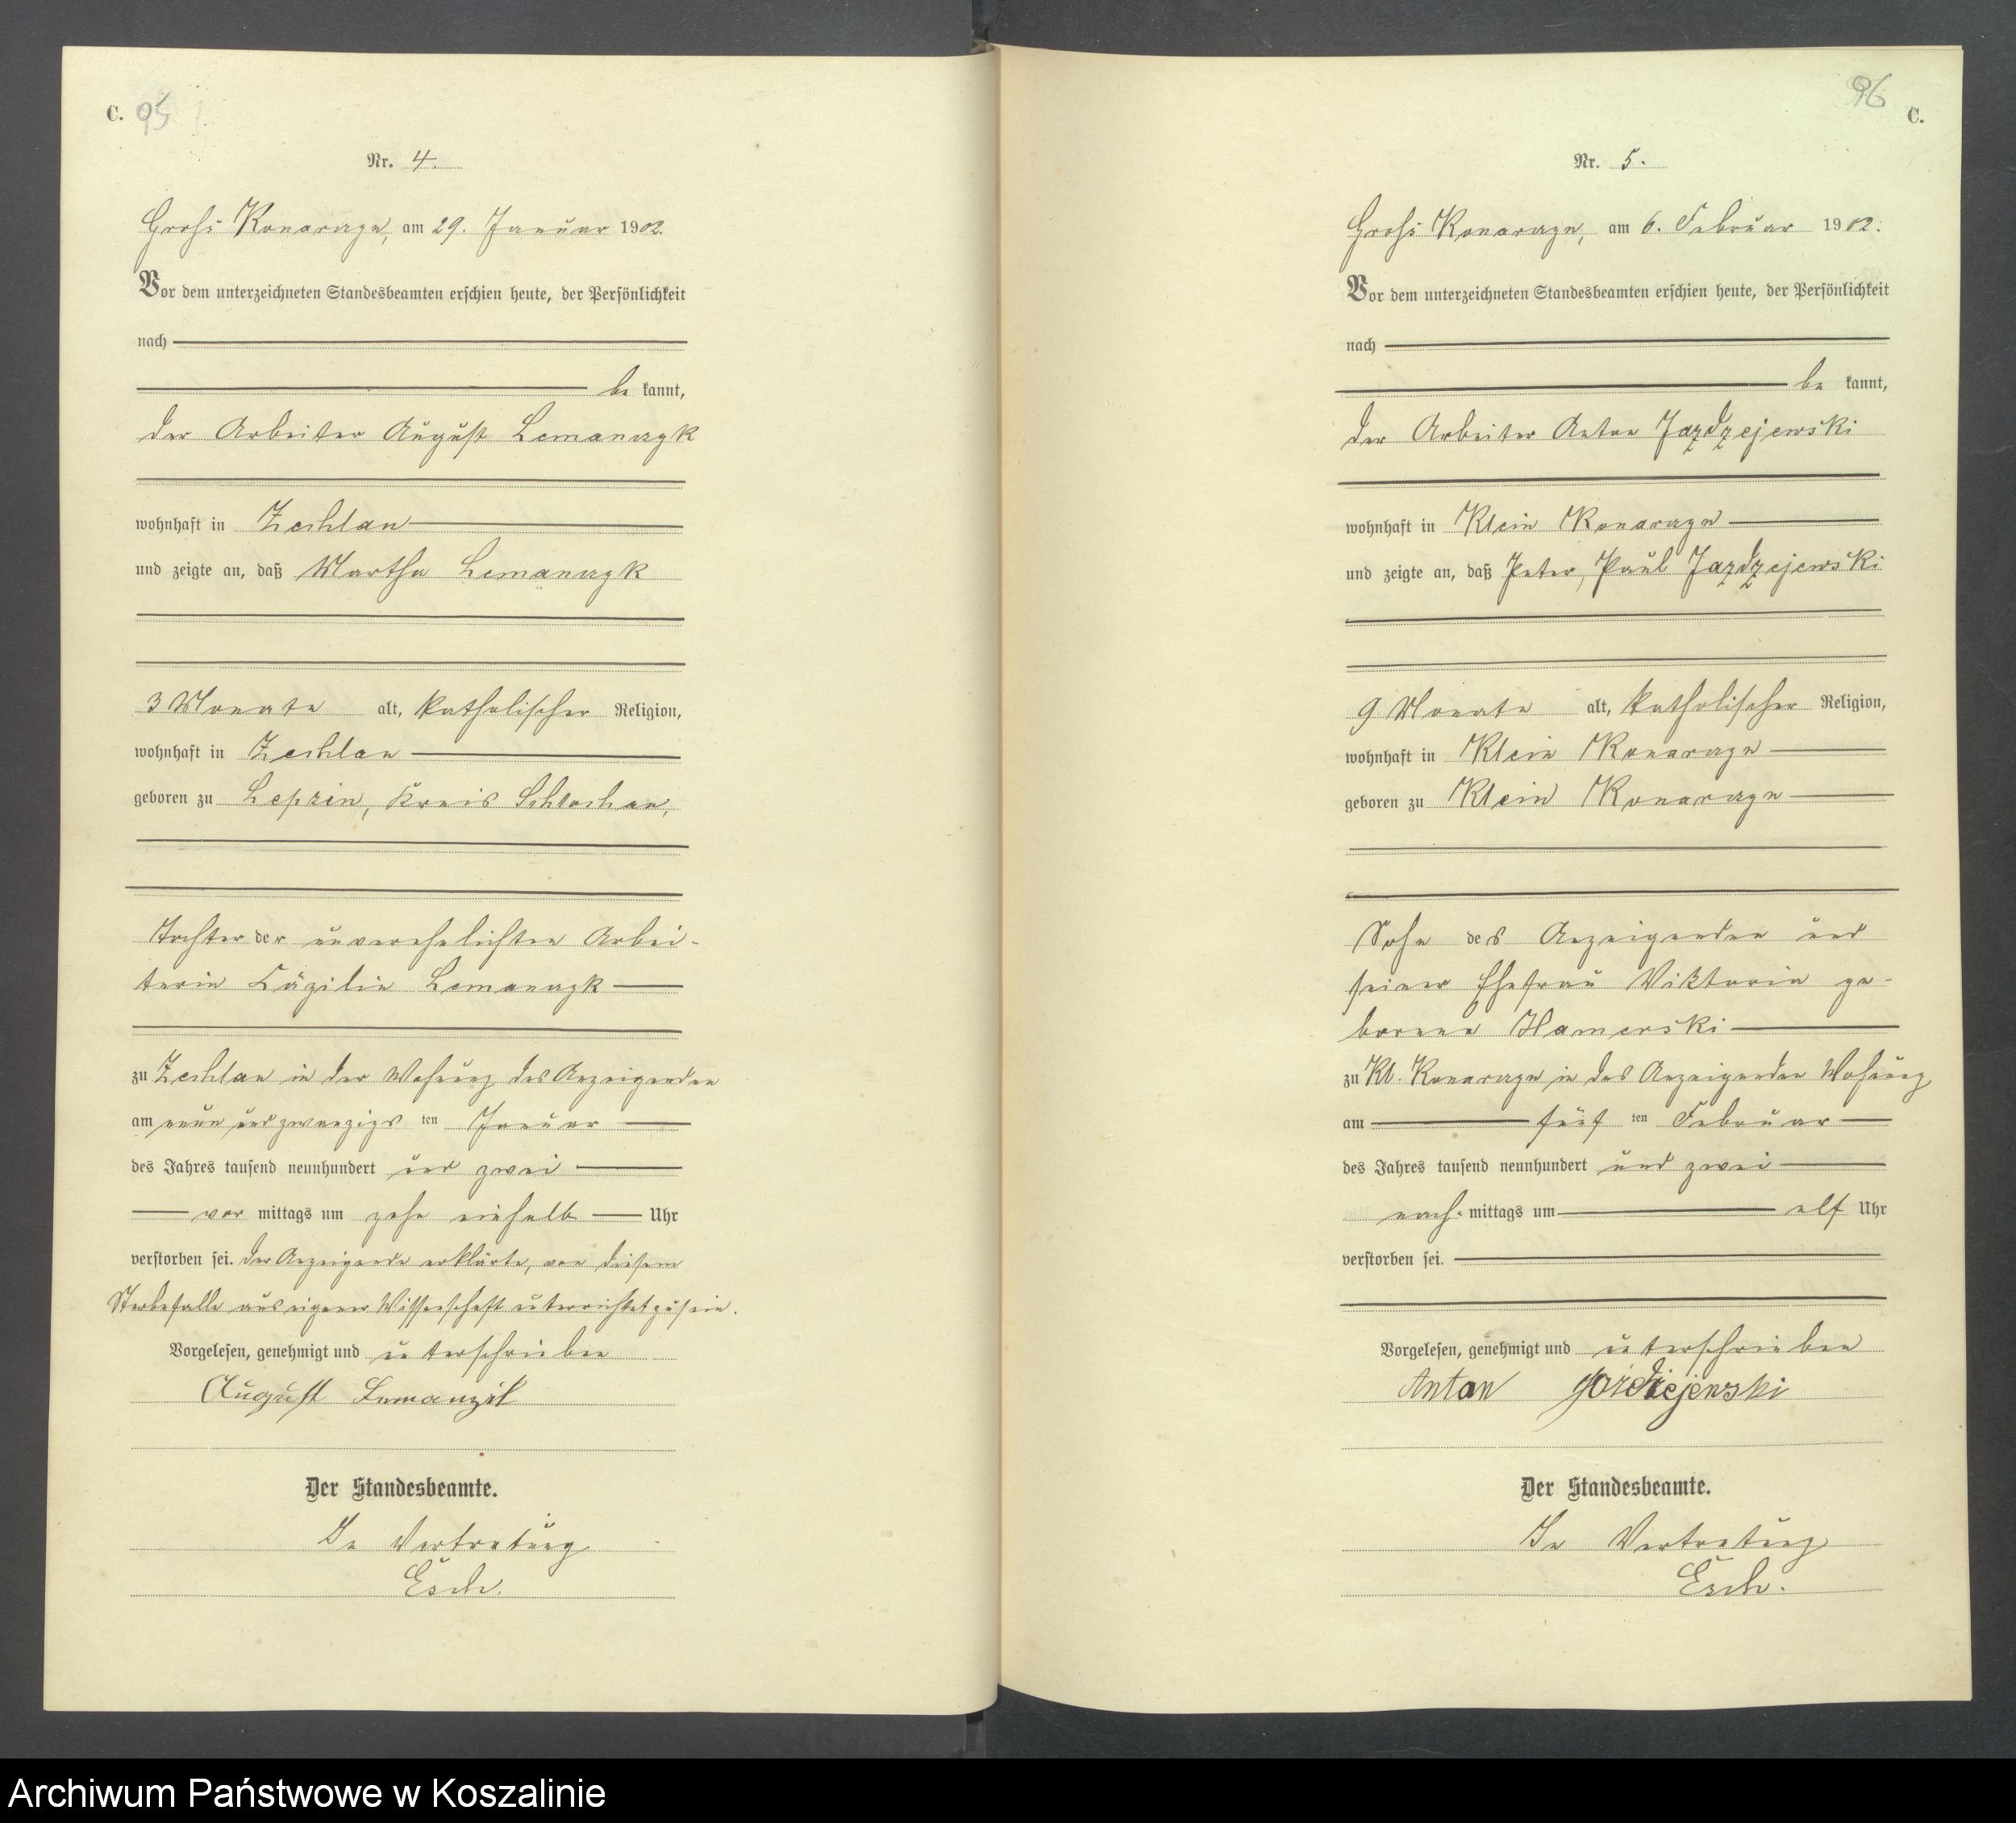 C. 95
Nr. 4.
Groß Konarczyn, am 29. Januar 1902.
Vor dem unterzeichneten Standesbeamten erschien heute, der Persönlichkeit
nach
be kannt,
der Arbeiter August Lemanczyk
wohnhaft in Zechlau
und zeigte an, daß Martha Lemanczyk
3 Monate alt, katholischer Religion,
wohnhaft in Zechlau
geboren zu Lepzin, Kreis Schlochau,
Tochter der unverehelichten Arbei-
terin Cäzilie Lemanczyk
zu Zechlau in der Wohnung des Anzeigenden
am neun und zwanzigs ten Januar
des Jahres tausend neunhundert und zwei
vor mittags um zehn einhalb Uhr
verstorben sei. Der Anzeigende erklärte, von diesem
Sterbefalle aus eigener Wissenschaft unterrichtet zu sein.
Vorgelesen, genehmigt und unterschrieben
August Lemanzik
Der Standesbeamte.
In Vertretung
Esch.
96
C.
Nr. 5.
Groß Konarczyn, am 6. Februar 1902.
Vor dem unterzeichneten Standesbeamten erschien heute, der Persönlichkeit
nach
be kannt,
der Arbeiter Anton Jazdzejewski
wohnhaft in Klein Konarczyn
und zeigte an, daß Peter, Paul Jazdzejewski
9 Monate alt, katholischer Religion,
wohnhaft in Klein Konarczyn
geboren zu Klein Konarczyn
Sohn des Anzeigenden und
seiner Ehefrau Viktoria ge-
borene Hamerski
zu Kl. Konarczyn in des Anzeigenden Wohnung
am fünf ten Februar
des Jahres tausend neunhundert und zwei
nach mittags um elf Uhr
verstorben sei.
Vorgelesen, genehmigt und unterschrieben
Anton
Der Standesbeamte.
In Vertretung
Esch.
Archiwum Państwowe w Koszalinie